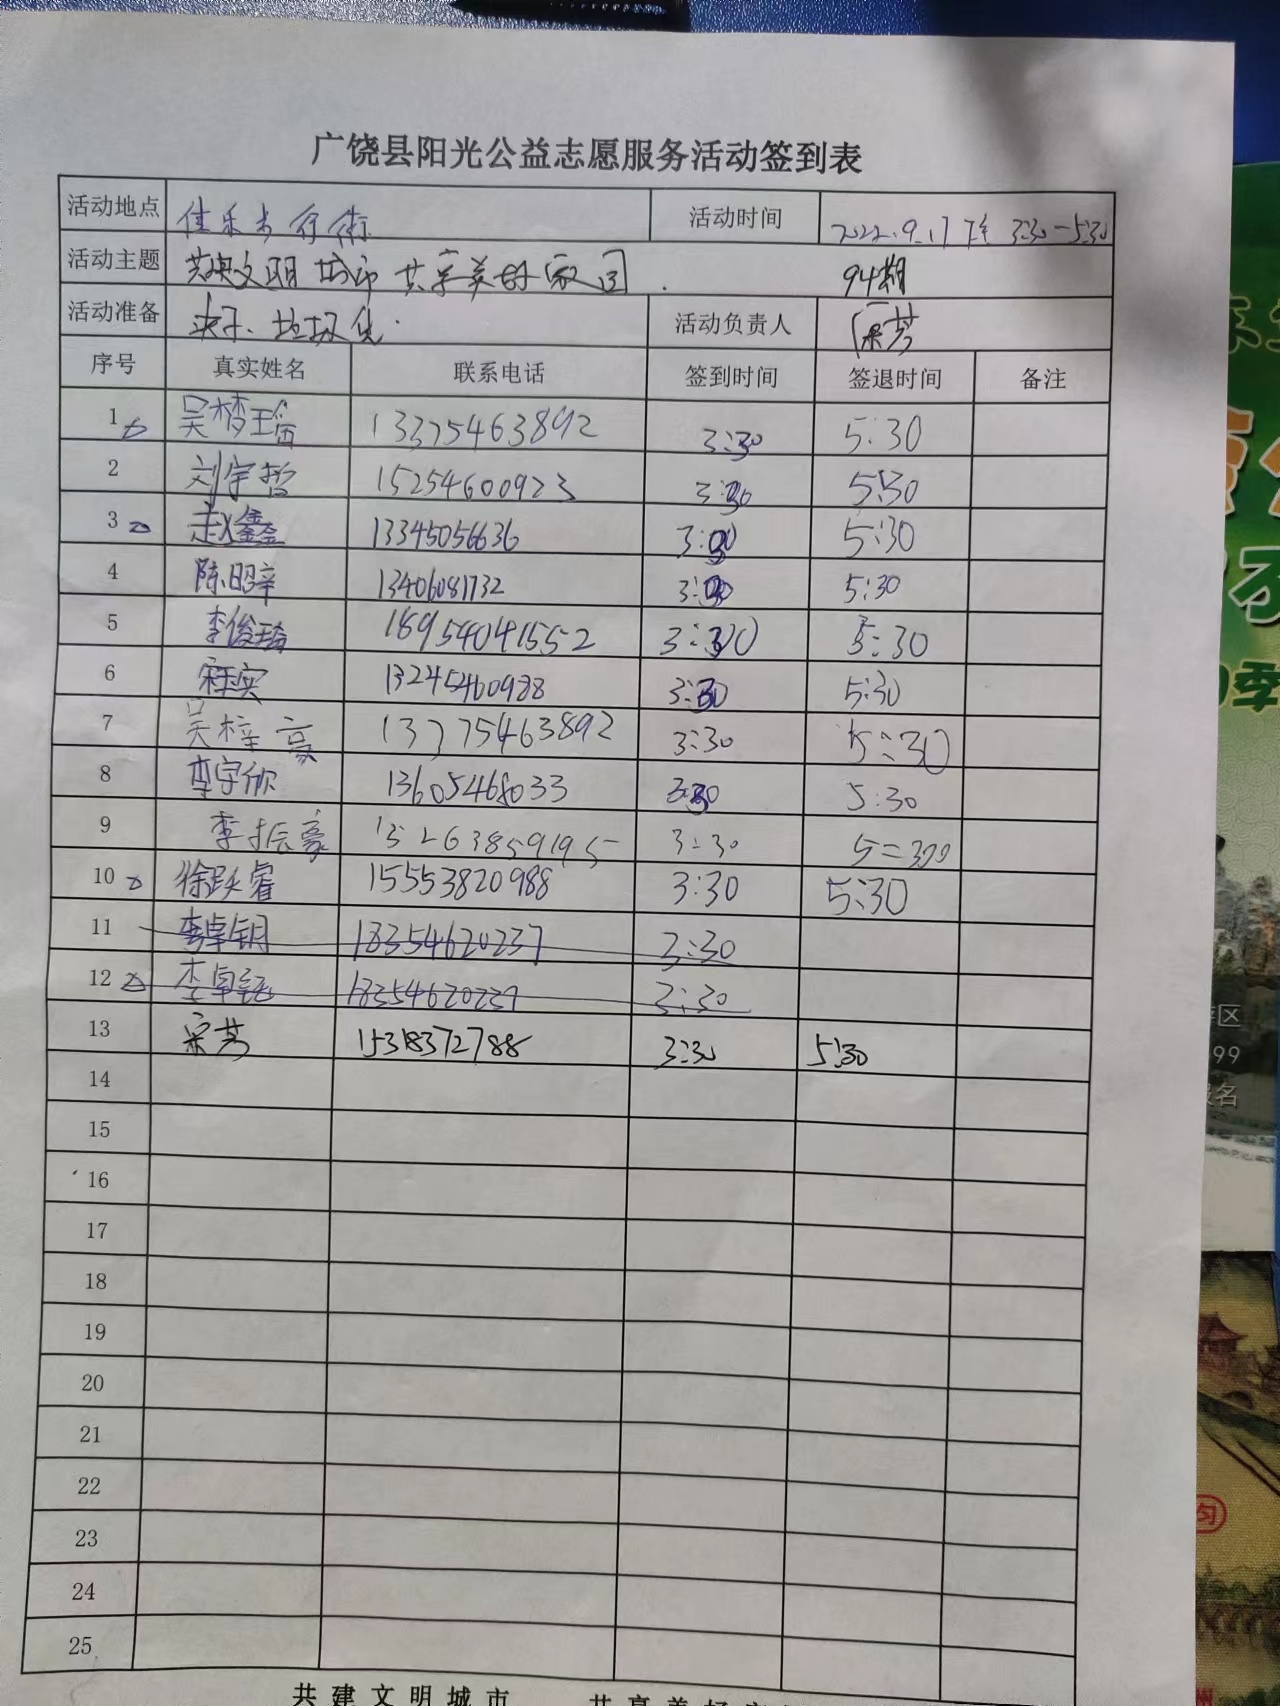 广饶县阳光公益志愿服务活动签到表
活动地点 佳乐 街 活动时间 2022.9.17 下午 3:30-5:30
活动主题 共建文明城市 共享美好家园. 94期
活动准备 夹子、垃圾袋. 活动负责人 宋芳
序号 真实姓名 联系电话 签到时间 签退时间 备注
1 吴梦瑶 13375463892 3:30 5:30
2 刘宇哲 15254600923 3:30 5:30
3 赵鑫鑫 13345056636 3:30 5:30
4 陈昭辛 13406081732 3:30 5:30
5 李俊琦 189540041552 3:30 5:30
6 宋实 13245460988 3:30 5:30
7 吴梓豪 13375463892 3:30 5:30
8 李宇欣 13605468033 3:30 5:30
9 李振豪 15263859195 3:30 5:30
10 徐跃睿 15553820988 3:30 5:30
11 李卓钥 18354620237 3:30
12 李卓钰 18354620237 3:30
13 宋芳 15318372788 3:30 5:30
14
15
16
17
18
19
20
21
22
23
24
25
共建文明城市 共享美好家
季
区
99
名